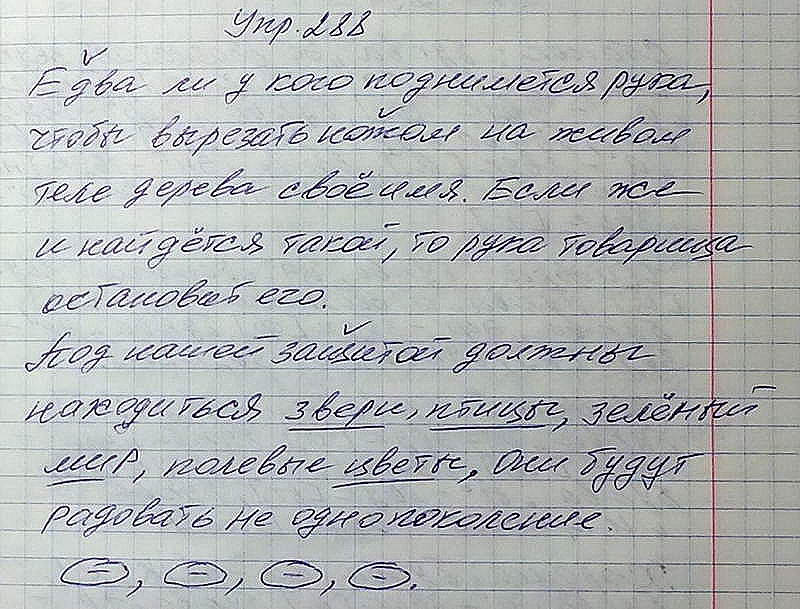 Упр. 288
Едва ли у кого поднимется рука,
чтобы вырезать ножом на живом
теле дерева своё имя. Если же
и найдётся такой, то рука товарища
остановит его.
Под нашей защитой должны
находиться звери, птицы, зелёный
мир, полевые цветы. Они будут
радовать не одно поколение.